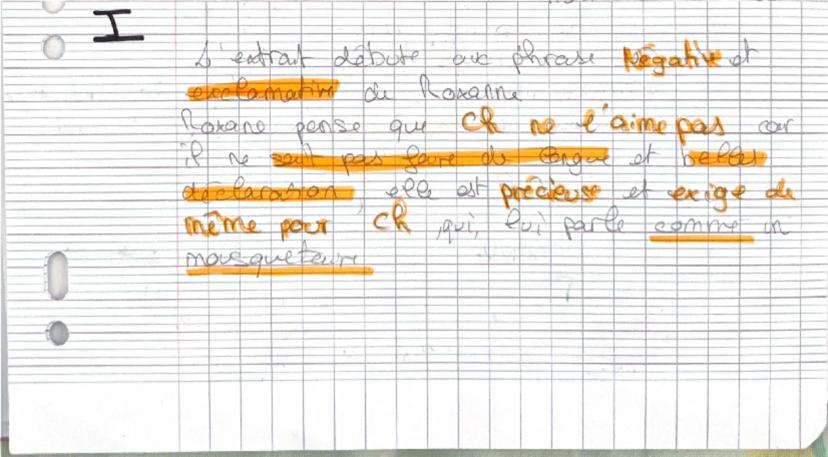 I
L'extrait débute avc phrase Négative et
exclamative de Roxanne
Roxane pense que Ch ne l'aime pas car
il ne sait pas faire de longue et belles
déclaration, elle est précieuse et exige de
même pour Ch, qui, lui parle comme un
mousquetaire